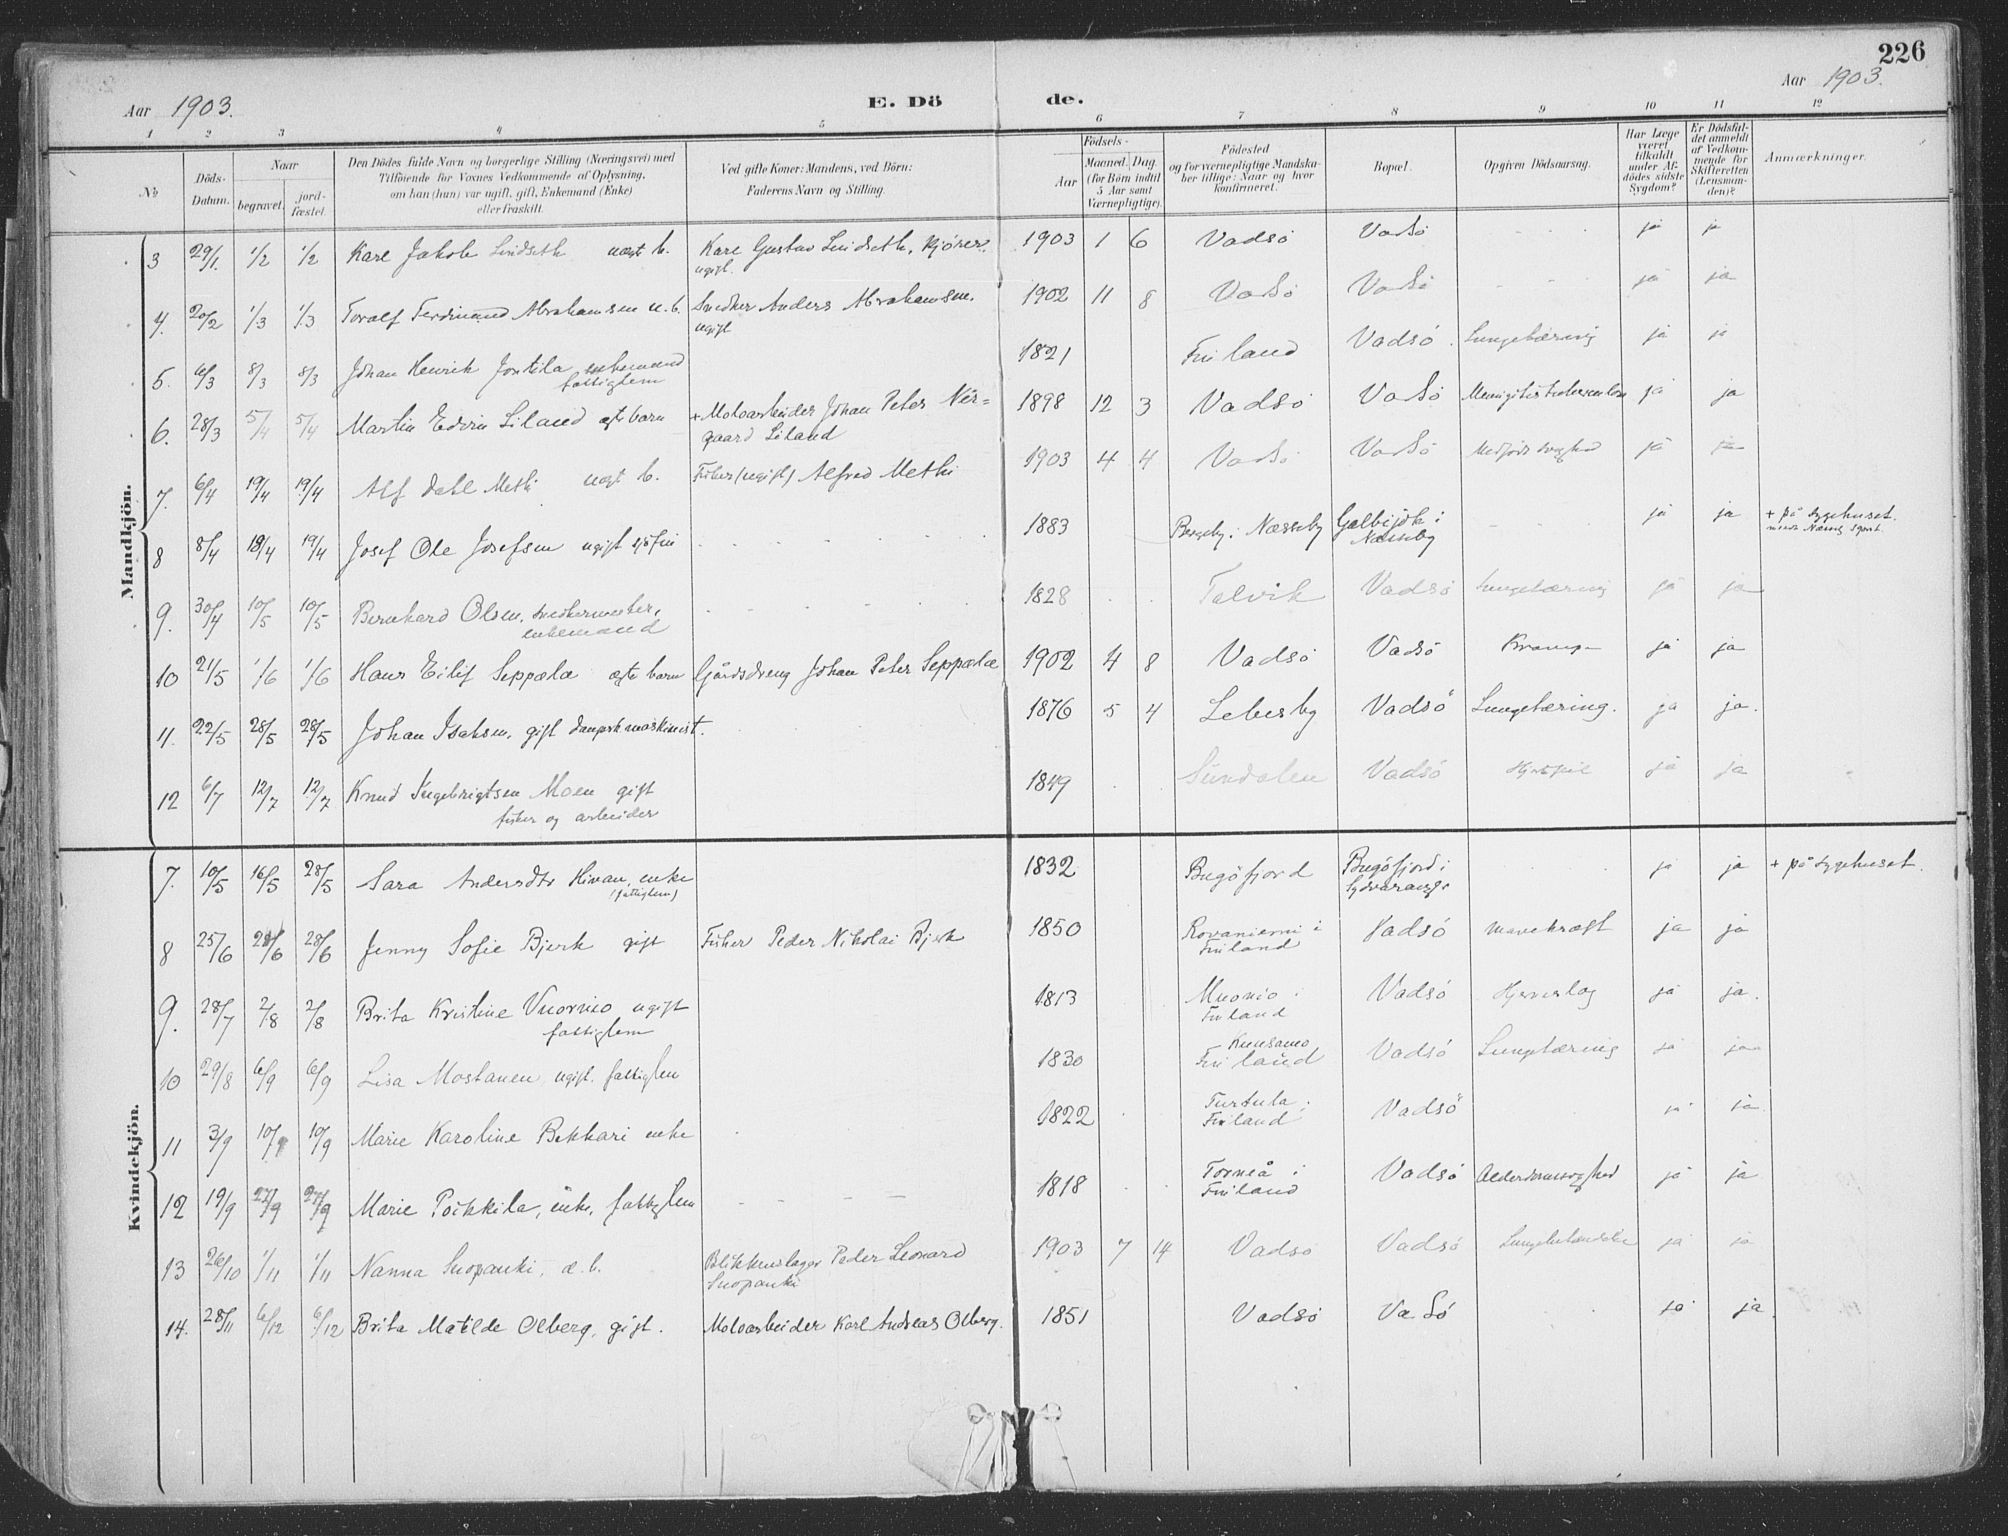 226
Aar 1903. E. Dö de. Aar 1903.
1 2 3 4 5 6 7 8 9 10 11 12
No
Döds-Datum.
Naar
begravet. jord-fæstet.
Den Dödes fulde Navn og borgerlige Stilling (Næringsvei) med
Tilföiende for Voxnes Vedkommende af Oplysning,
om han (hun) var ugift, gift, Enkemand (Enke)
eller fraskilt.
Ved gifte Koner: Mandens, ved Börn:
Faderens Navn og Stilling.
Födsels-
Aar Maaned. Dag.
(for Börn indtil
5 Aar samt
Værnepligtige).
Födested
og for værnepligtige Mandska-
ber tillige: Naar og hvor
konfirmeret.
Bopæl.
Opgiven Dödsaarsag.
Har Læge
været
tilkaldt
under Af-
dödes sidste
Sygdom?
Er Dödsfal-
det anmeldt
af Vedkom-
mende for
Skifteretten
(Lensman-
den)?
Anmærkninger.
Mandkjön.
3 29/1 1/2 1/2 Karl Jakob Lindseth uægte b. Karl Gustav Lindseth, kjörer 1903 1 6 Vadsö Vadsö ja ja
ugift.
4. 20/2 1/3 1/3 Toralf Ferdinand Abrahamsen u. b. Snedker Anders Abrahamsen. 1902 11 8 Vadsö Vadsö ja ja
ugift
5. 6/3 8/3 8/3 Johan Henrik Jontila enkemand 1821 Finland Vadsö. Lungetæring ja ja
fattiglem
6. 28/3 5/4 5/4 Martin Edvin Liland ægte barn + Moloarbeider Johan Peter Nér= 1898 12 3 Vadsö Vadsö Meningitis tuberculosa ja ja
gaard Liland
7. 6/4 19/4 19/4 Alf Dahl Methi uægt b. Fisker (ugift) Alfred Methi 1903 4 4 Vadsö Vadsö Medfödt svaghed ja ja
8 8/4 19/4 19/4 Josef Ole Josefsen ugift sjöfin 1883 Bergeby i Næsseby Galbijok i ja ja + på sygehuset.
Næsseby
9. 30/4 10/5 10/5 Bernhard Olsen, snedkermester, 1828 Talvik Vadsö Lungetæring ja ja
enkemand
10 21/5 1/6 1/6 Hans Eilif Seppælæ ægte barn Gårdsdreng Johan Peter Seppælæ 1902 4 8 Vadsö Vadsö Krampe ja ja
11. 22/5 28/5 28/5 Johan Isaksen, gift dampskmaskinist. 1876 5 4 Lebesby Vadsö Lungetæring. ja ja.
12 6/7 12/7 12/7 Knud Ingebrigtsen Moen gift 1849 Sundalen Vadsö Hjertfeil ja ja
fisker og arbeider
Kvindekjön.
7. 10/5 16/5 28/5 Sara Andersdtr Hivan, enke 1832 Bugöfjord Bugöfjord i ja ja + på sygehuset.
(fattiglem) Sydvaranger
8 25/6 28/6 28/6 Jenny Sofie Bjerk gift Fisker Peder Nikolai Bjerk 1850 Rovaniemi i Vadsö mavekræft ja ja
Finland
9. 28/7 2/8 2/8 Brita Kristine Vuornio ugift 1813 Muonio i Vadsö Hjerneslag ja ja.
fattiglem Finland
10 29/8 6/9 6/9 Lisa Mostanen ugift. fattiglem 1830 Kuusamo Vadsö Lungetæring ja ja
Finland
11 3/9 10/9 10/9 Marie Karoline Bekkari enke 1822 Turtula i Vadsö ja ja.
Finland
12 19/9 27/9 27/9 Marie Poikkila, enke, fattiglem 1818 Torneå i Vadsö Alderdomssvaghed ja ja
Finland
13 26/10 1/11 1/11 Nanna Snopanki, æ. b. Blikkenslager Peder Leonard 1903 7 14 Vadsö Vadsö Lungebetændelse ja ja
Snopanki
14. 28/11 6/12 6/12 Brita Matilde Olberg, gift. Moloarbeider Karl Andreas Olberg. 1851 Vadsö Vadsö ja ja